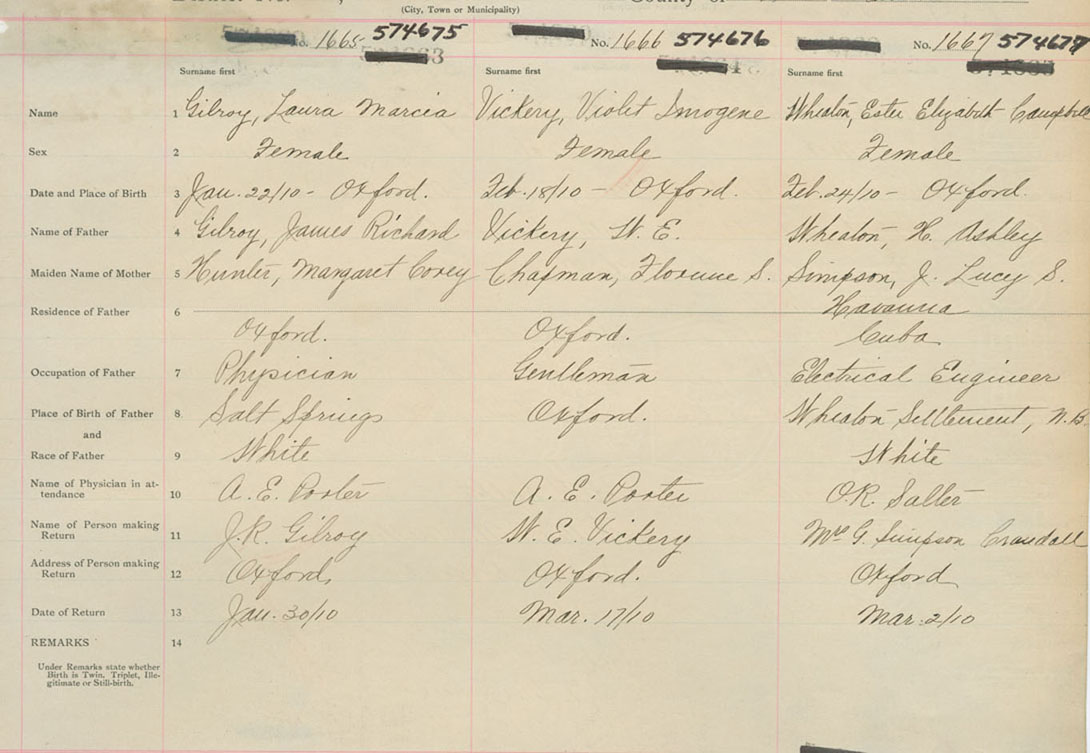 (City, Town or Municipality)
County of
No. 1665 574675 No. 1666 574676 No. 1667 574677
Surname first Surname first Surname first
Name 1 Gilroy, Laura Marcia Vickery, Violet Imogene Wheaton, Ester Elizabeth Campbell
Sex 2 Female Female Female
Date and Place of Birth 3 Jan. 22/10 - Oxford. Feb. 18/10 - Oxford. Feb. 24/10 - Oxford.
Name of Father 4 Gilroy, James Richard Vickery, W. E. Wheaton, H. Ashley
Maiden Name of Mother 5 Hunter, Margaret Corey Chapman, Florence S. Simpson, J. Lucy S.
Residence of Father 6 Havanna
Oxford. Oxford. Cuba
Occupation of Father 7 Physician Gentleman Electrical Engineer
Place of Birth of Father 8 Salt Springs Oxford. Wheaton Settlement, N.B.
and
Race of Father 9 White White
Name of Physician in at-
tendance 10 A. E. Porter A. E. Porter O.R. Salter
Name of Person making
Return 11 J.R. Gilroy W. E. Vickery Mrs G. Simpson Crandall
Address of Person making
Return 12 Oxford. Oxford. Oxford
Date of Return 13 Jan. 30/10 Mar. 17/10 Mar. 2/10
REMARKS 14
Under Remarks state whether
Birth is Twin, Triplet, Ille-
gitimate or Still-birth.